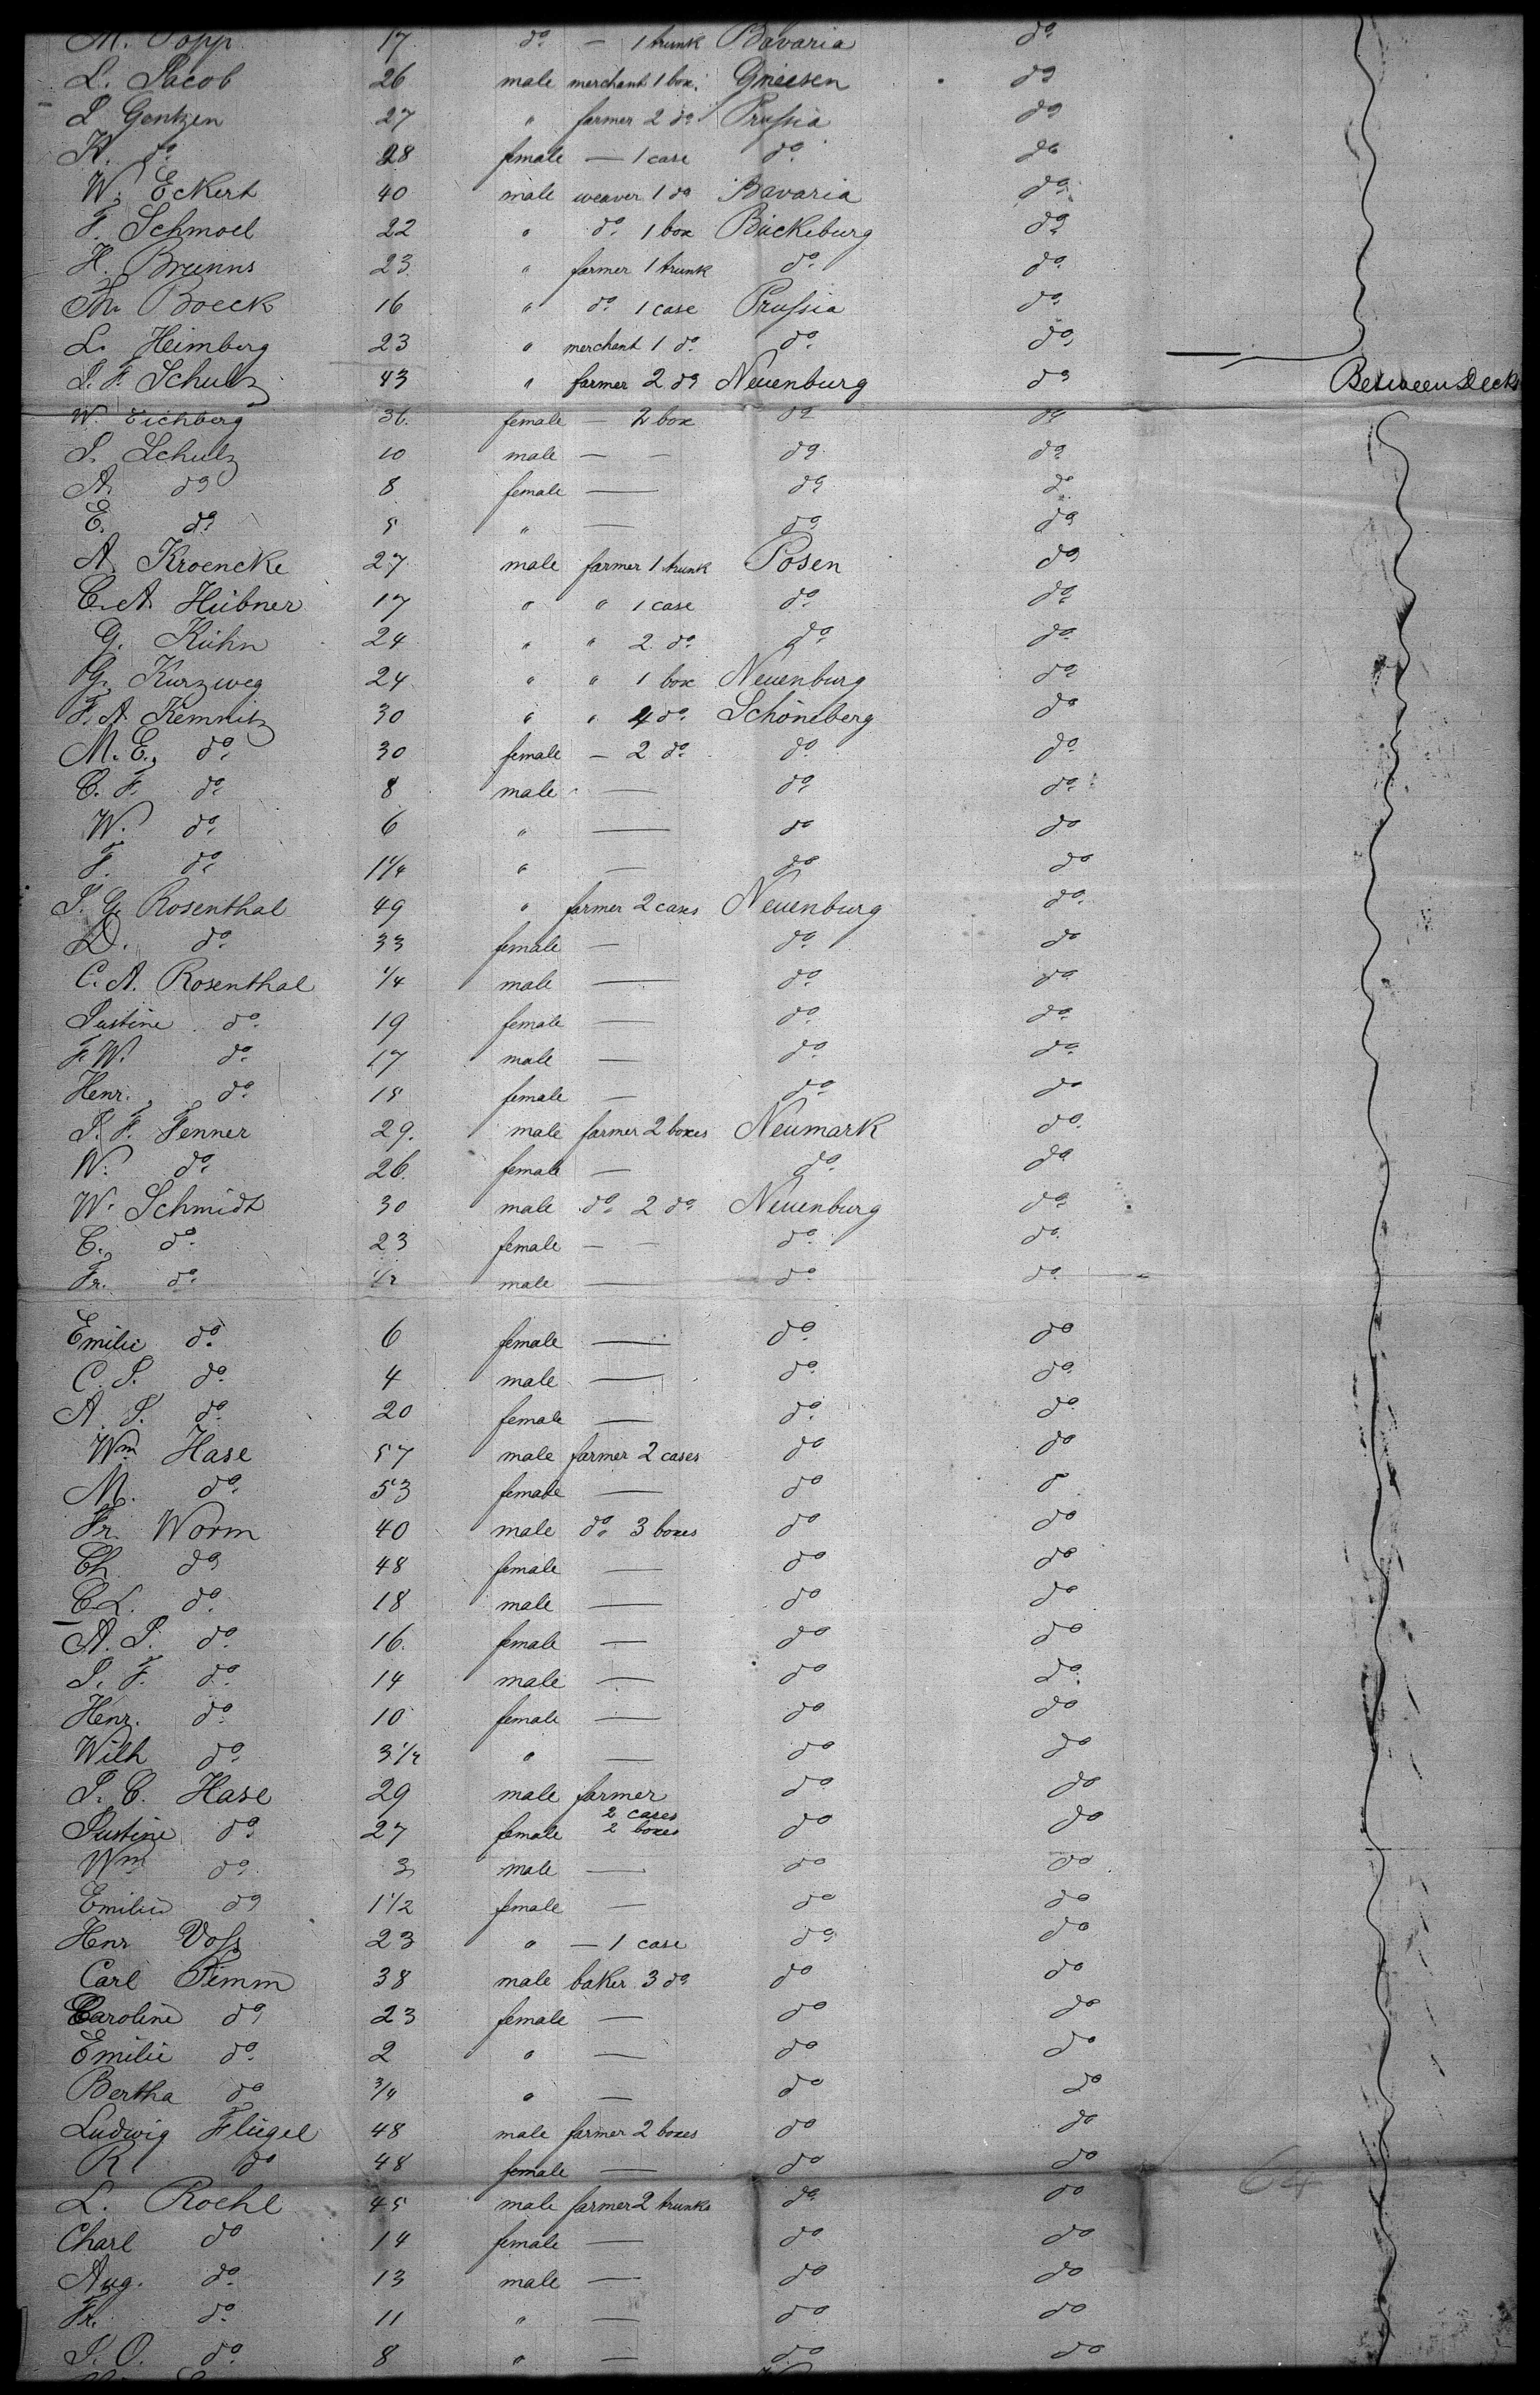 M. Popp 17 do — 1 trunk Bavaria do
L. Jacob 26 male merchant 1 box. Gneesen do
J Gentzen 27 " farmer 2 do Prussia do
K. do 28 female — 1 case do do
W. Eckert 40 male weaver 1 do Bavaria do
F. Schmoel 22 " do 1 box Bückeburg do
H. Brunns 23 " farmer 1 trunk do do
Th. Boeck 16 " do 1 case Prussia do
L. Heimberg 23 " merchant 1 do do do
J. F. Schulz 43 " farmer 2 do Neuenburg do Between Decks
W. Eichberg 36. female — 2 box do do
J. Schulz 10 male — — do do
A. do 8 female — do do
E. do 5 " — do do
A Kroencke 27 male farmer 1 trunk Posen do
C. A. Hübner 17 " " 1 case do do
G. Kühn 24 " " 2 do do do
G. Kurzweg 24 " " 1 box Neuenburg do
F. A. Kemnitz 30 " " 4 do Schöneberg do
M. E. do 30 female — 2 do do do
C. F. do 8 male — do do
W. do 6 " — do do
F. do 1 1/4 " — do do
J. G. Rosenthal 49 " farmer 2 cases Neuenburg do
D. do 33 female — do do
C. A. Rosenthal 1/4 male — do do
Justine do 19 female — do do
F. W. do 17 male — do do
Henr. do 15 female — do do
J. F. Fenner 29. male farmer 2 boxes Neumark do
W. do 26. female — do do
W. Schmidt 30 male do 2 do Neuenburg do
C. do 23 female — — do do
Fr. do 1/2 male — do do
Emilie do 6 female — do do
C. J. do 4 male — do do
A. J. do 20 female — do do
Wm Hase 57 male farmer 2 cases do do
M. do 53 female — do do
Fr. Worm 40 male do 3 boxes do do
Ch do 48 female — do do
C. L. do 18 male — do do
A. J. do 16. female — do do
J. F. do 14 male — do do
Henr. do 10 female — do do
Wilh do 3 1/2 " — do do
J. C. Hase 29 male farmer do do
2 cases
Justine do 27 female 2 boxes do do
Wm do 3 male — do do
Emilie do 1 1/2 female — do do
Henr Voss 23 " — 1 case do do
Carl Timm 38 male baker 3 do do do
Caroline do 23 female — do do
Emilie do 2 " — do do
Bertha do 3/4 " — do do
Ludwig Flügel 48 male farmer 2 boxes do do
R. do 48 female — do do
L. Roehl 45 male farmer 2 trunks do do
Charl do 14 female — do do
Aug. do 13 male — do do
Fr. do 11 " — do do
J. O. do 8 " — do do